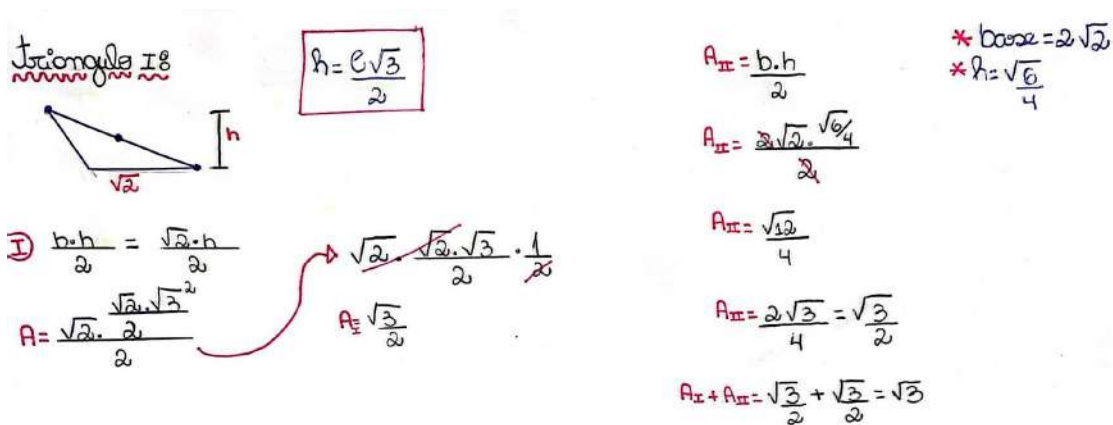 triangulo I:
h = ℓ√3/2
h
√2
I b.h/2 = √2.h/2
A = √2. √2.√3²/2 /2
√2. √2.√3/2 . 1/2
A_I = √3/2
A_II = b.h/2
A_II = 2√2.√6/4 /2
A_II = √12/4
A_II = 2√3/4 = √3/2
A_I + A_II = √3/2 + √3/2 = √3
* base = 2√2
* h = √6/4